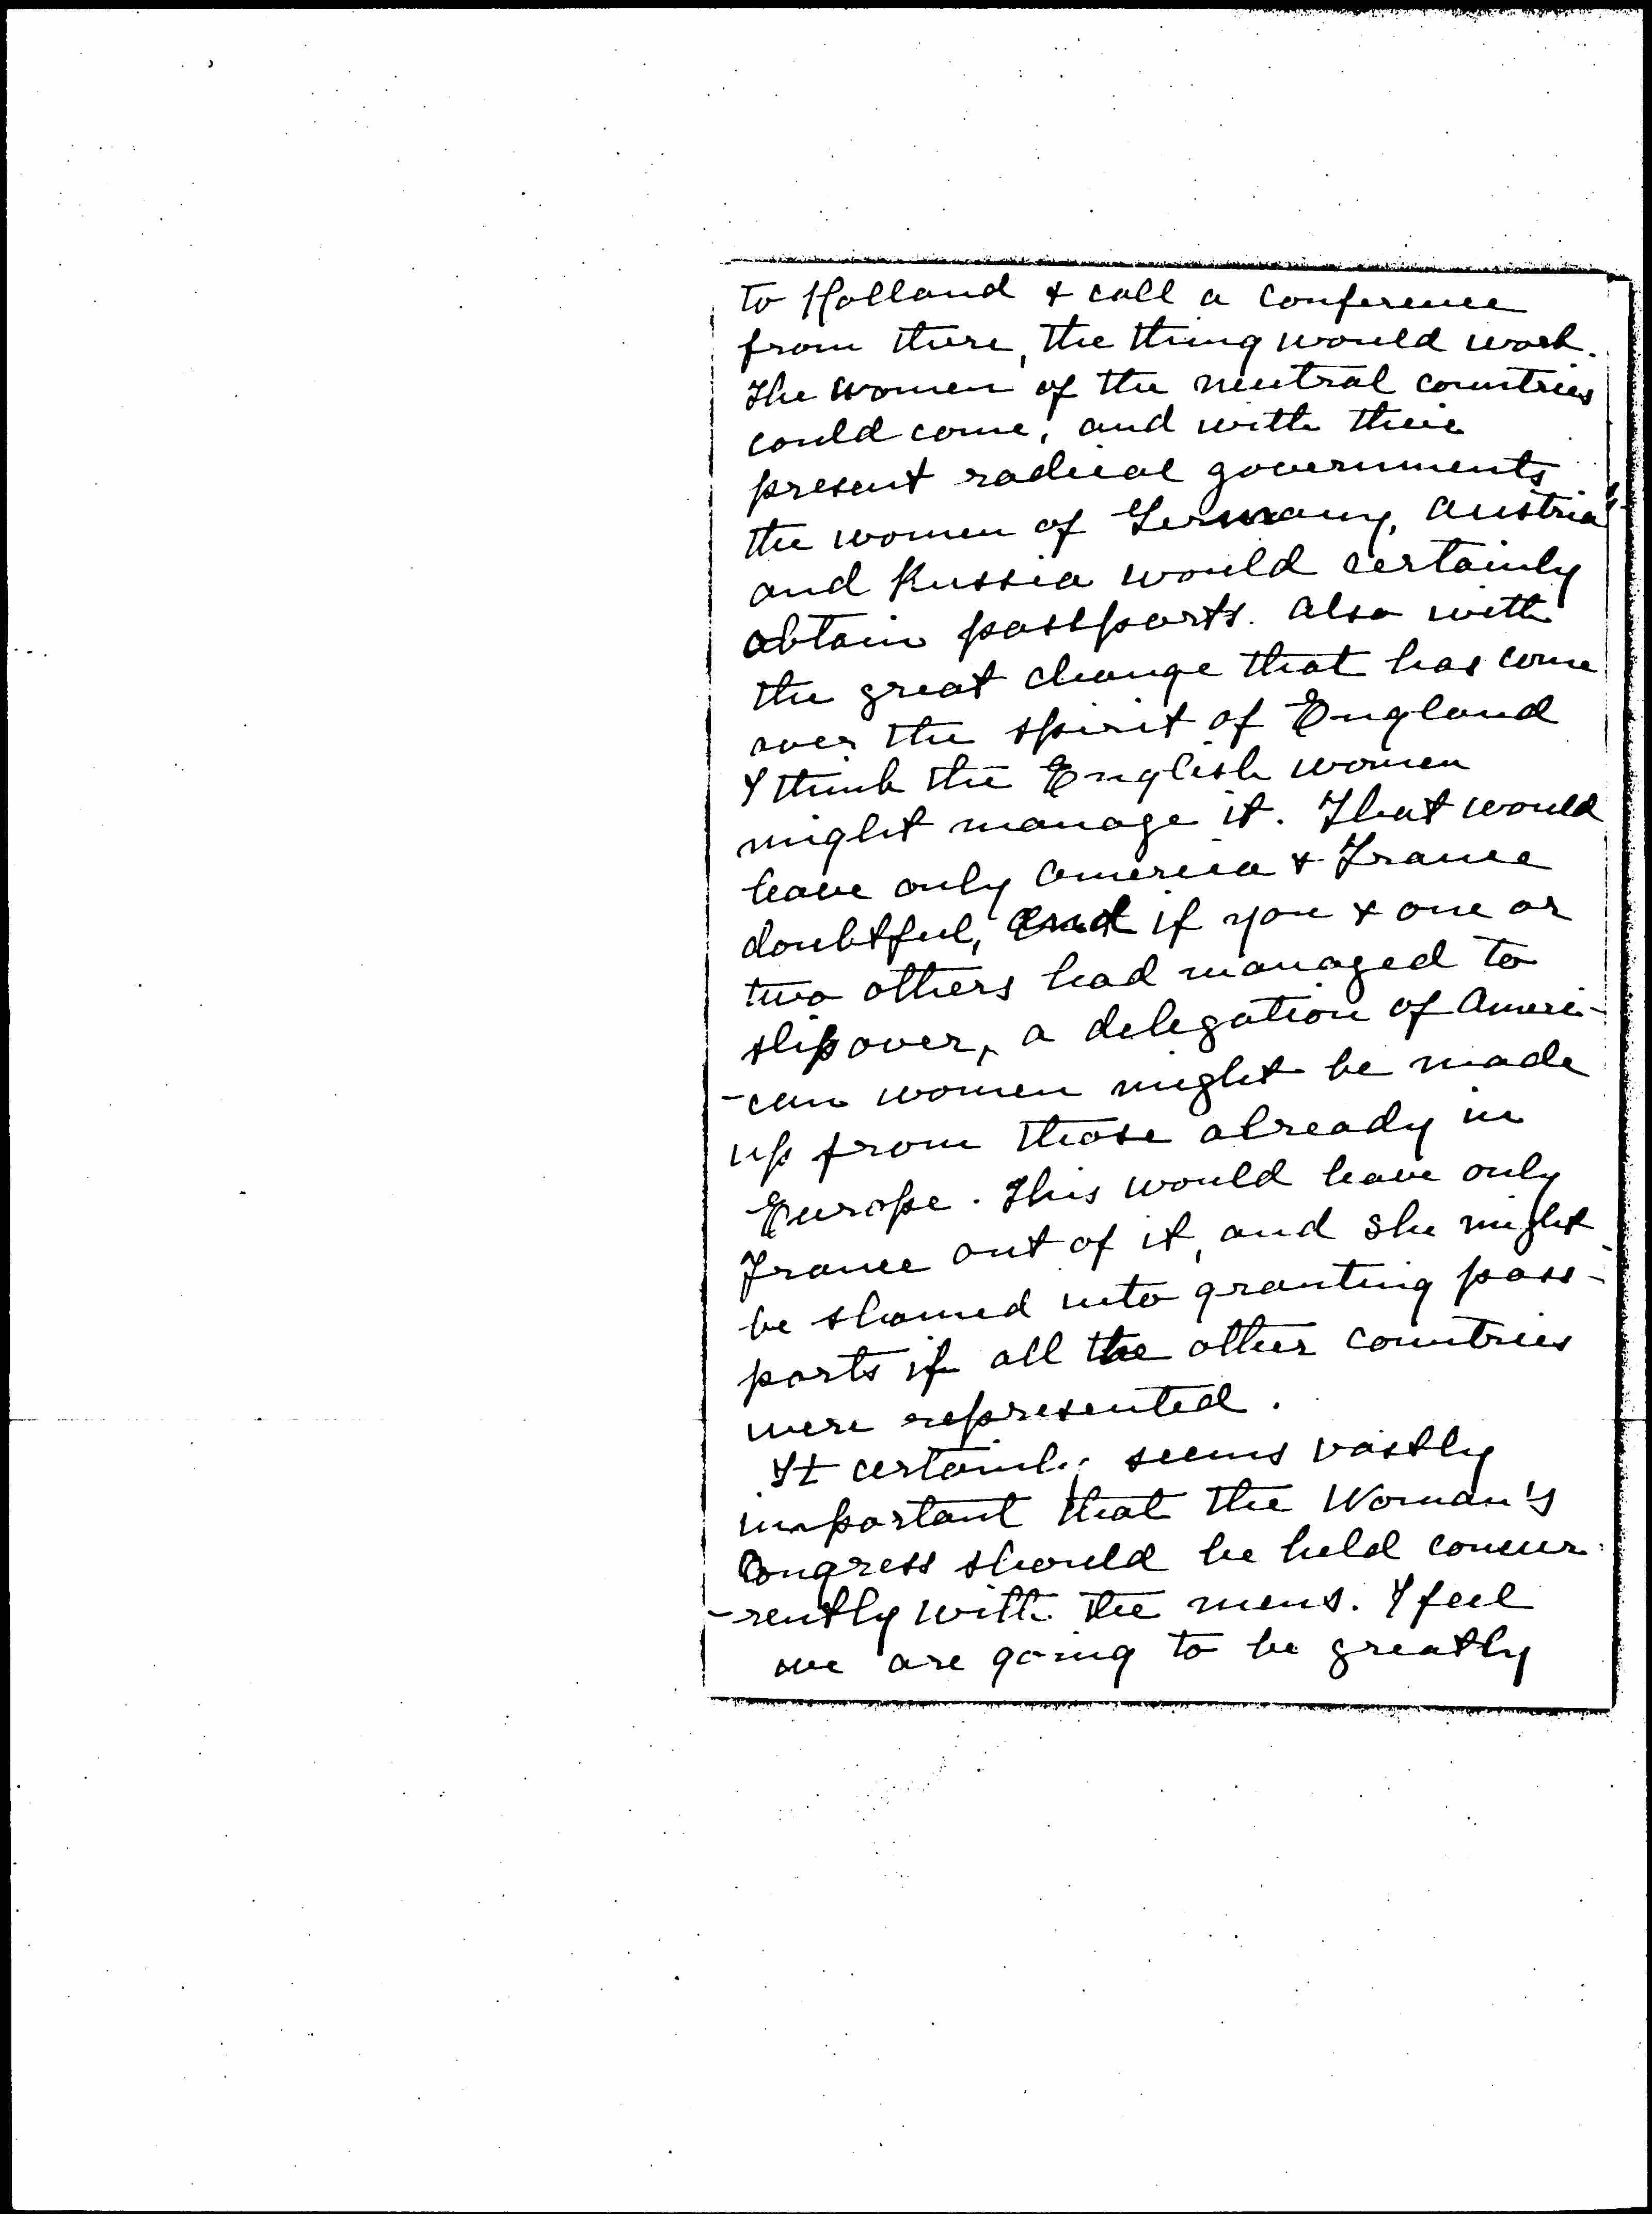 to Holland & call a conference
from there, the thing would work.
The women of the neutral countries
could come, and with their
present radical governments
the women of Germany, Austria
and Russia would certainly
obtain passports. Also with
the great change that has come
over the spirit of England
I think the English women
might manage it. That would
leave only America & France
doubtful, and if you & one or
two others had managed to
slip over, a delegation of Ameri-
-can women might be made
up from those already in
Europe. This would leave only
France out of it, and she might
be shamed into granting pass-
ports if all the other countries
were represented.
It certainly seems vastly
important that the Woman's
Congress should be held concur-
-rently with the mens. I feel
we are going to be greatly